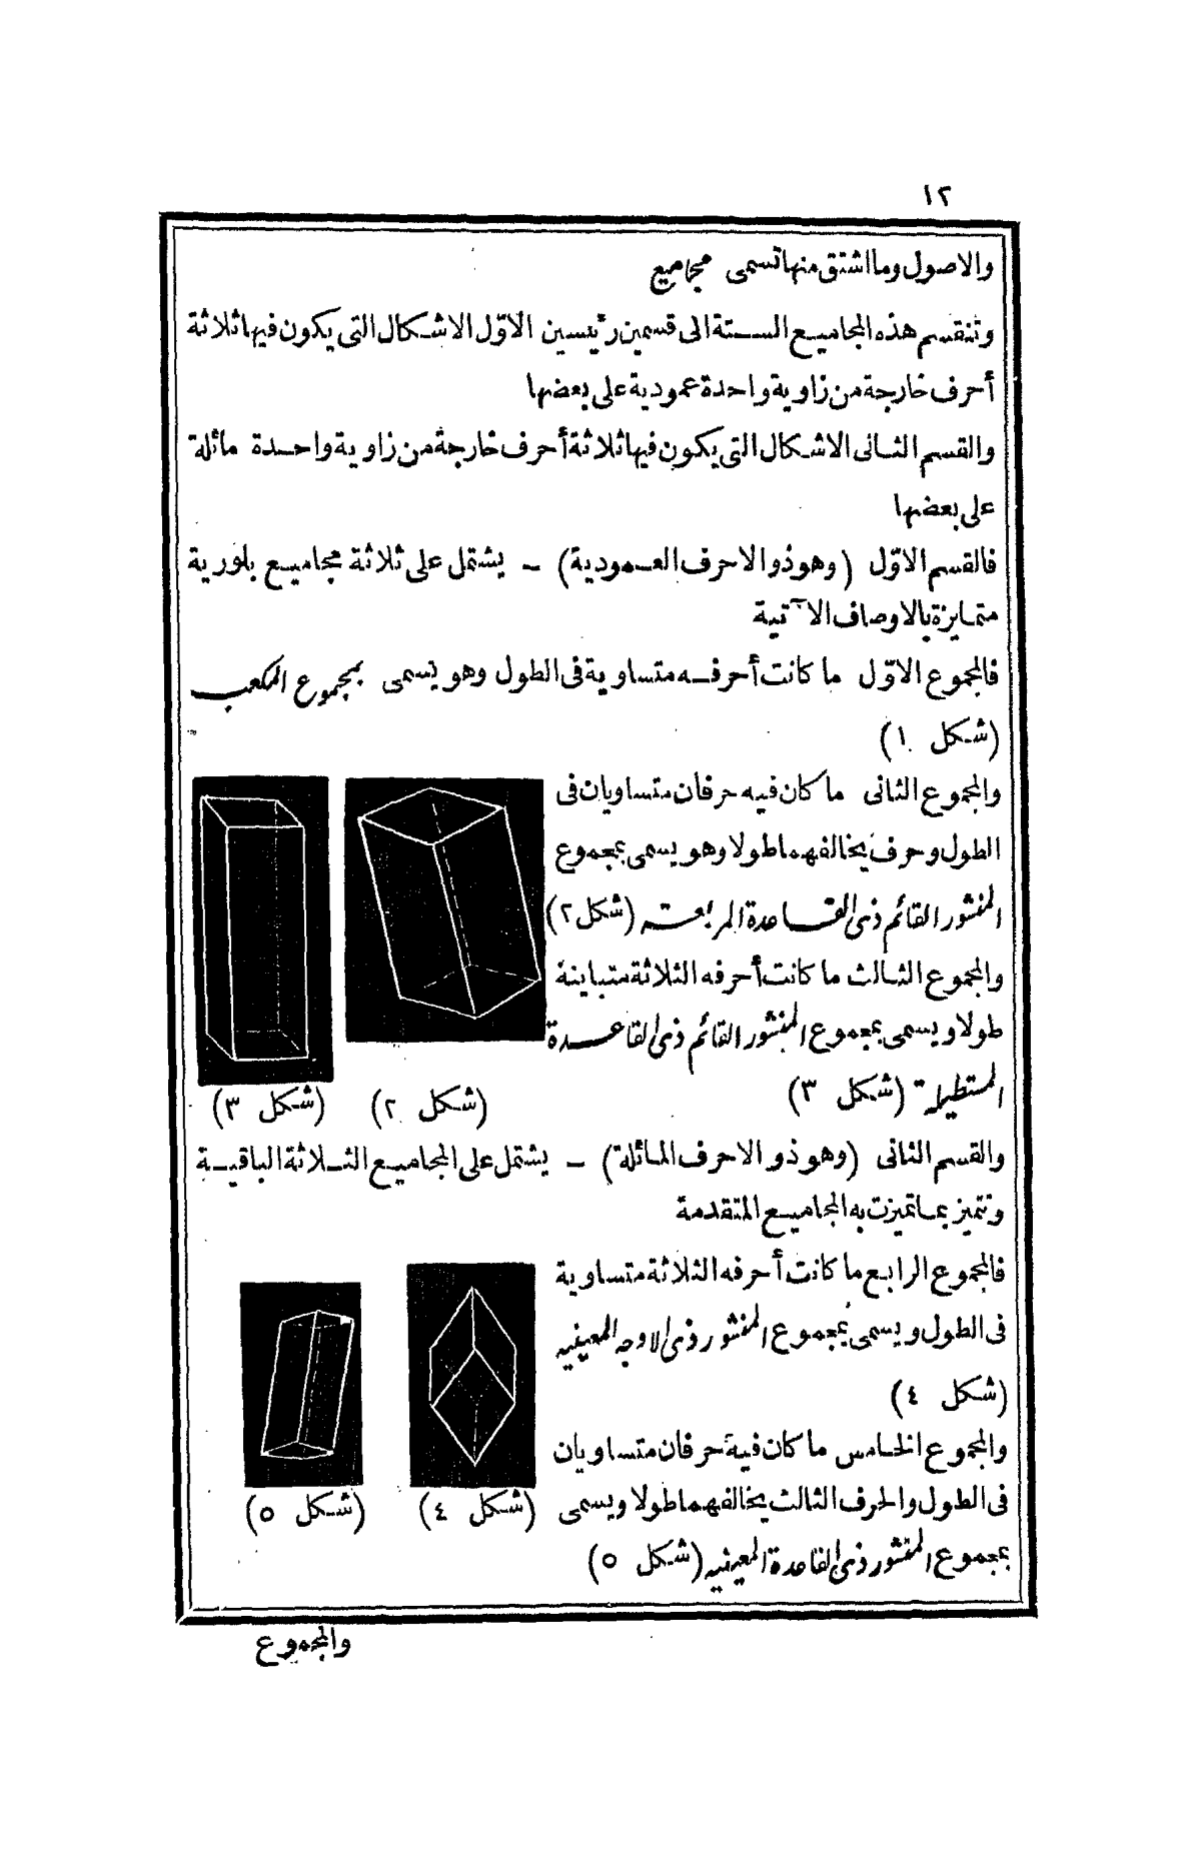 ١٢
والاصول وما اشتق منها تسمى مجاميع
وتنقسم هذه المجاميع الستة الى قسمين رئيسين الاوّل الاشكال التى يكون فيها ثلاثة
أحرف خارجة من زاوية واحدة عمودية على بعضها
والقسم الثانى الاشكال التى يكون فيها ثلاثة أحرف خارجة من زاوية واحدة مائلة
على بعضها
فالقسم الاوّل (وهو ذو الاحرف العمودية) – يشتمل على ثلاثة مجاميع بلورية
متمايزة بالاوصاف الآتية
فالمجموع الاوّل ما كانت أحرفه متساوية فى الطول وهو يسمى بمجموع المكعب
(شكل ١)
والمجموع الثانى ما كان فيه حرفان متساويان فى
الطول وحرف يخالفهما طولا وهو يسمى بمجموع
المنشور القائم ذى القاعدة المربعة (شكل ٢)
والمجموع الثالث ما كانت أحرفه الثلاثة متباينة
طولا ويسمى بمجموع المنشور القائم ذى القاعدة
المستطيلة (شكل ٣)
(شكل ٢) (شكل ٣)
والقسم الثانى (وهو ذو الاحرف المائلة) – يشتمل على المجاميع الثلاثة الباقية
وتتميز بما تميزت به المجاميع المتقدمة
فالمجموع الرابع ما كانت أحرفه الثلاثة متساوية
فى الطول ويسمى بمجموع المنشور ذى الاوجه المعينيه
(شكل ٤)
والمجموع الخامس ما كان فيه حرفان متساويان
فى الطول والحرف الثالث يخالفهما طولا ويسمى
(شكل ٤) (شكل ٥)
بمجموع المنشور ذى القاعدة المعينيه (شكل ٥)
والمجموع